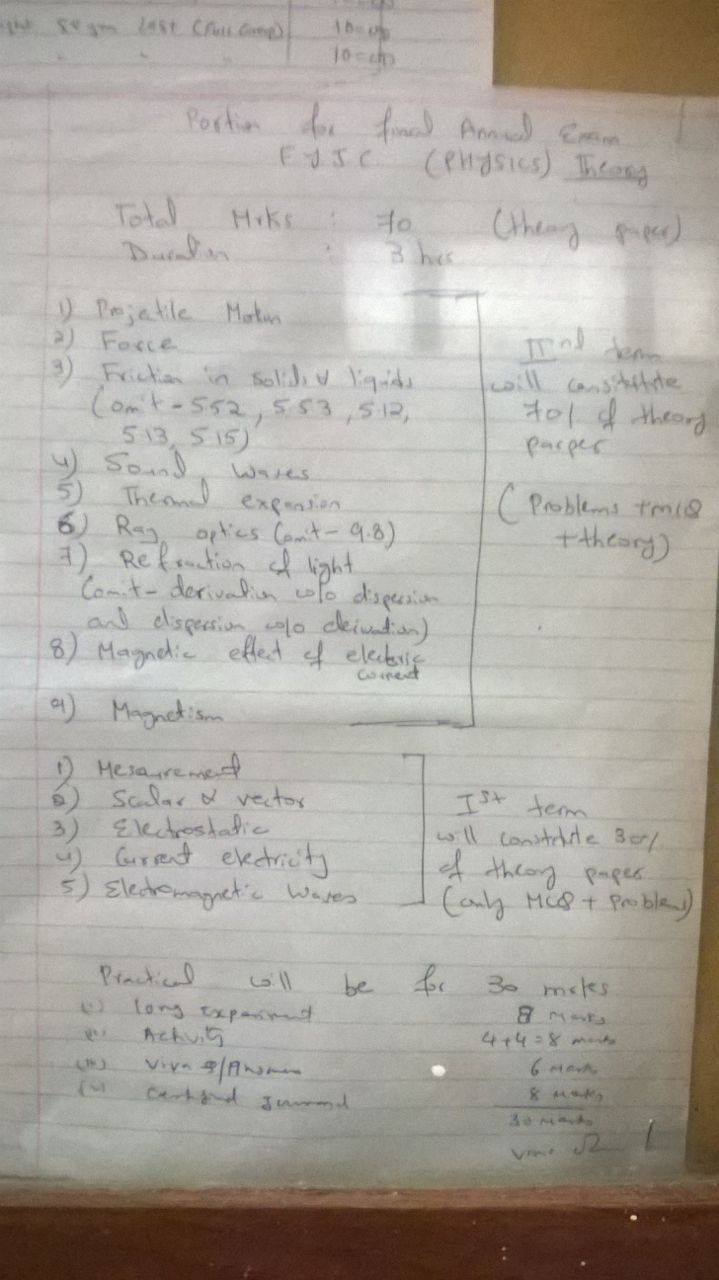 last (Full Comp)
10=00
10=00
Portion for final Annual Exam
FYJC (PHYSICS) Theory
Total Mrks : 70 (theory paper)
Duration : 3 hrs
1) Projetile Motion
2) Force
3) Friction in solids & liquids
(omit - 5.5.2, 5.5.3, 5.12,
5.13, 5.15)
4) Sound waves
5) Thermal expansion
6) Ray optics (omit - 9.8)
7) Refraction of light
(omit - derivation w/o dispersion
and dispersion w/o deivation)
8) Magnetic effect of electric
current
9) Magnetism
IInd term
will constitute
70% of theory
parper
(Problems + mcQ
+ theory)
1) Mesurement
2) Scalar & vector
3) Electrostatic
4) Current electricity
5) Electromagnetic Waves
Ist term
will constitute 30%
of theory paper
(only MCQ + Problems)
Practical will be for 30 mrks
(i) long experiment 8 Marks
(ii) Activity 4+4=8 marks
(iii) Viva 6 Marks
(iv) Certified Journal 8 Marks
30 Marks